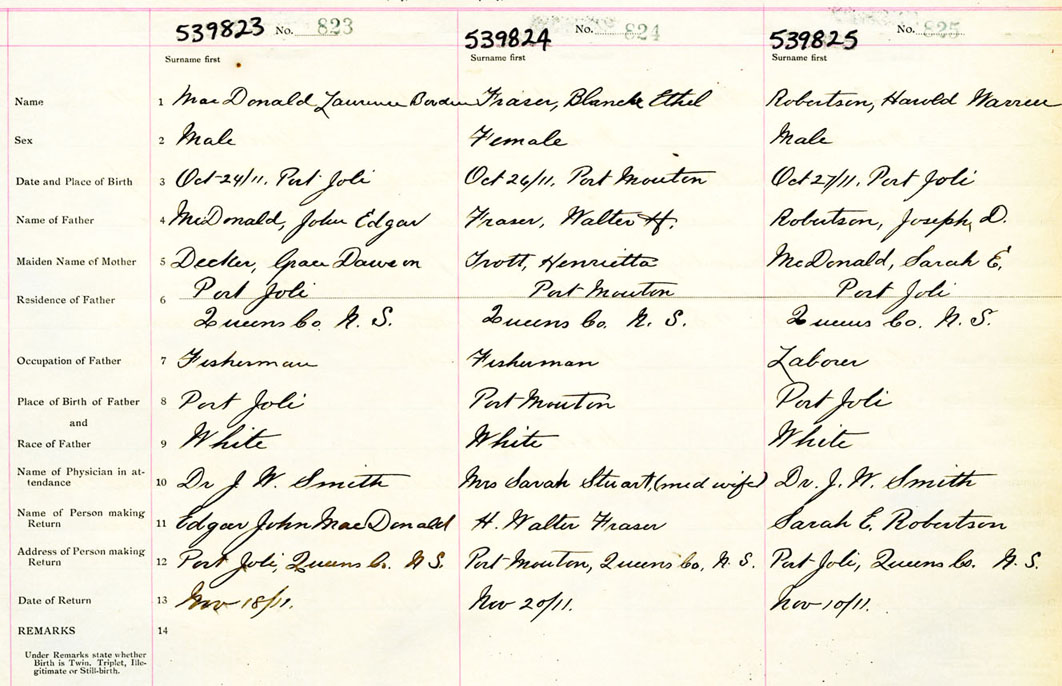 539823 No. 823 539824 No. 824 539825 No. 825
Surname first Surname first Surname first
Name 1 MacDonald Laurence Borden Fraser, Blanche Ethel Robertson, Harold Warren
Sex 2 Male Female Male
Date and Place of Birth 3 Oct 24/11. Port Joli Oct 26/11. Port Mouton Oct 27/11. Port Joli
Name of Father 4 McDonald, John Edgar Fraser, Walter H. Robertson, Joseph, D.
Maiden Name of Mother 5 Decker, Grace Dawson Trott, Henrietta McDonald, Sarah E.
Residence of Father 6 Port Joli Port Mouton Port Joli
Queens Co. N. S. Queens Co. N. S. Queens Co. N. S.
Occupation of Father 7 Fisherman Fisherman Laborer
Place of Birth of Father 8 Port Joli Port Mouton Port Joli
and
Race of Father 9 White White White
Name of Physician in at-
tendance 10 Dr J. W. Smith Mrs Sarah Stuart, (med wife) Dr. J. W. Smith
Name of Person making
Return 11 Edgar John MacDonald H. Walter Fraser Sarah E. Robertson
Address of Person making
Return 12 Port Joli, Queens Co. N S. Port Mouton, Queens Co, N. S. Port Joli, Queens Co. N. S.
Date of Return 13 Nov 18/11. Nov 20/11. Nov 10/11.
REMARKS 14
Under Remarks state whether
Birth is Twin, Triplet, Ille-
gitimate or Still-birth.